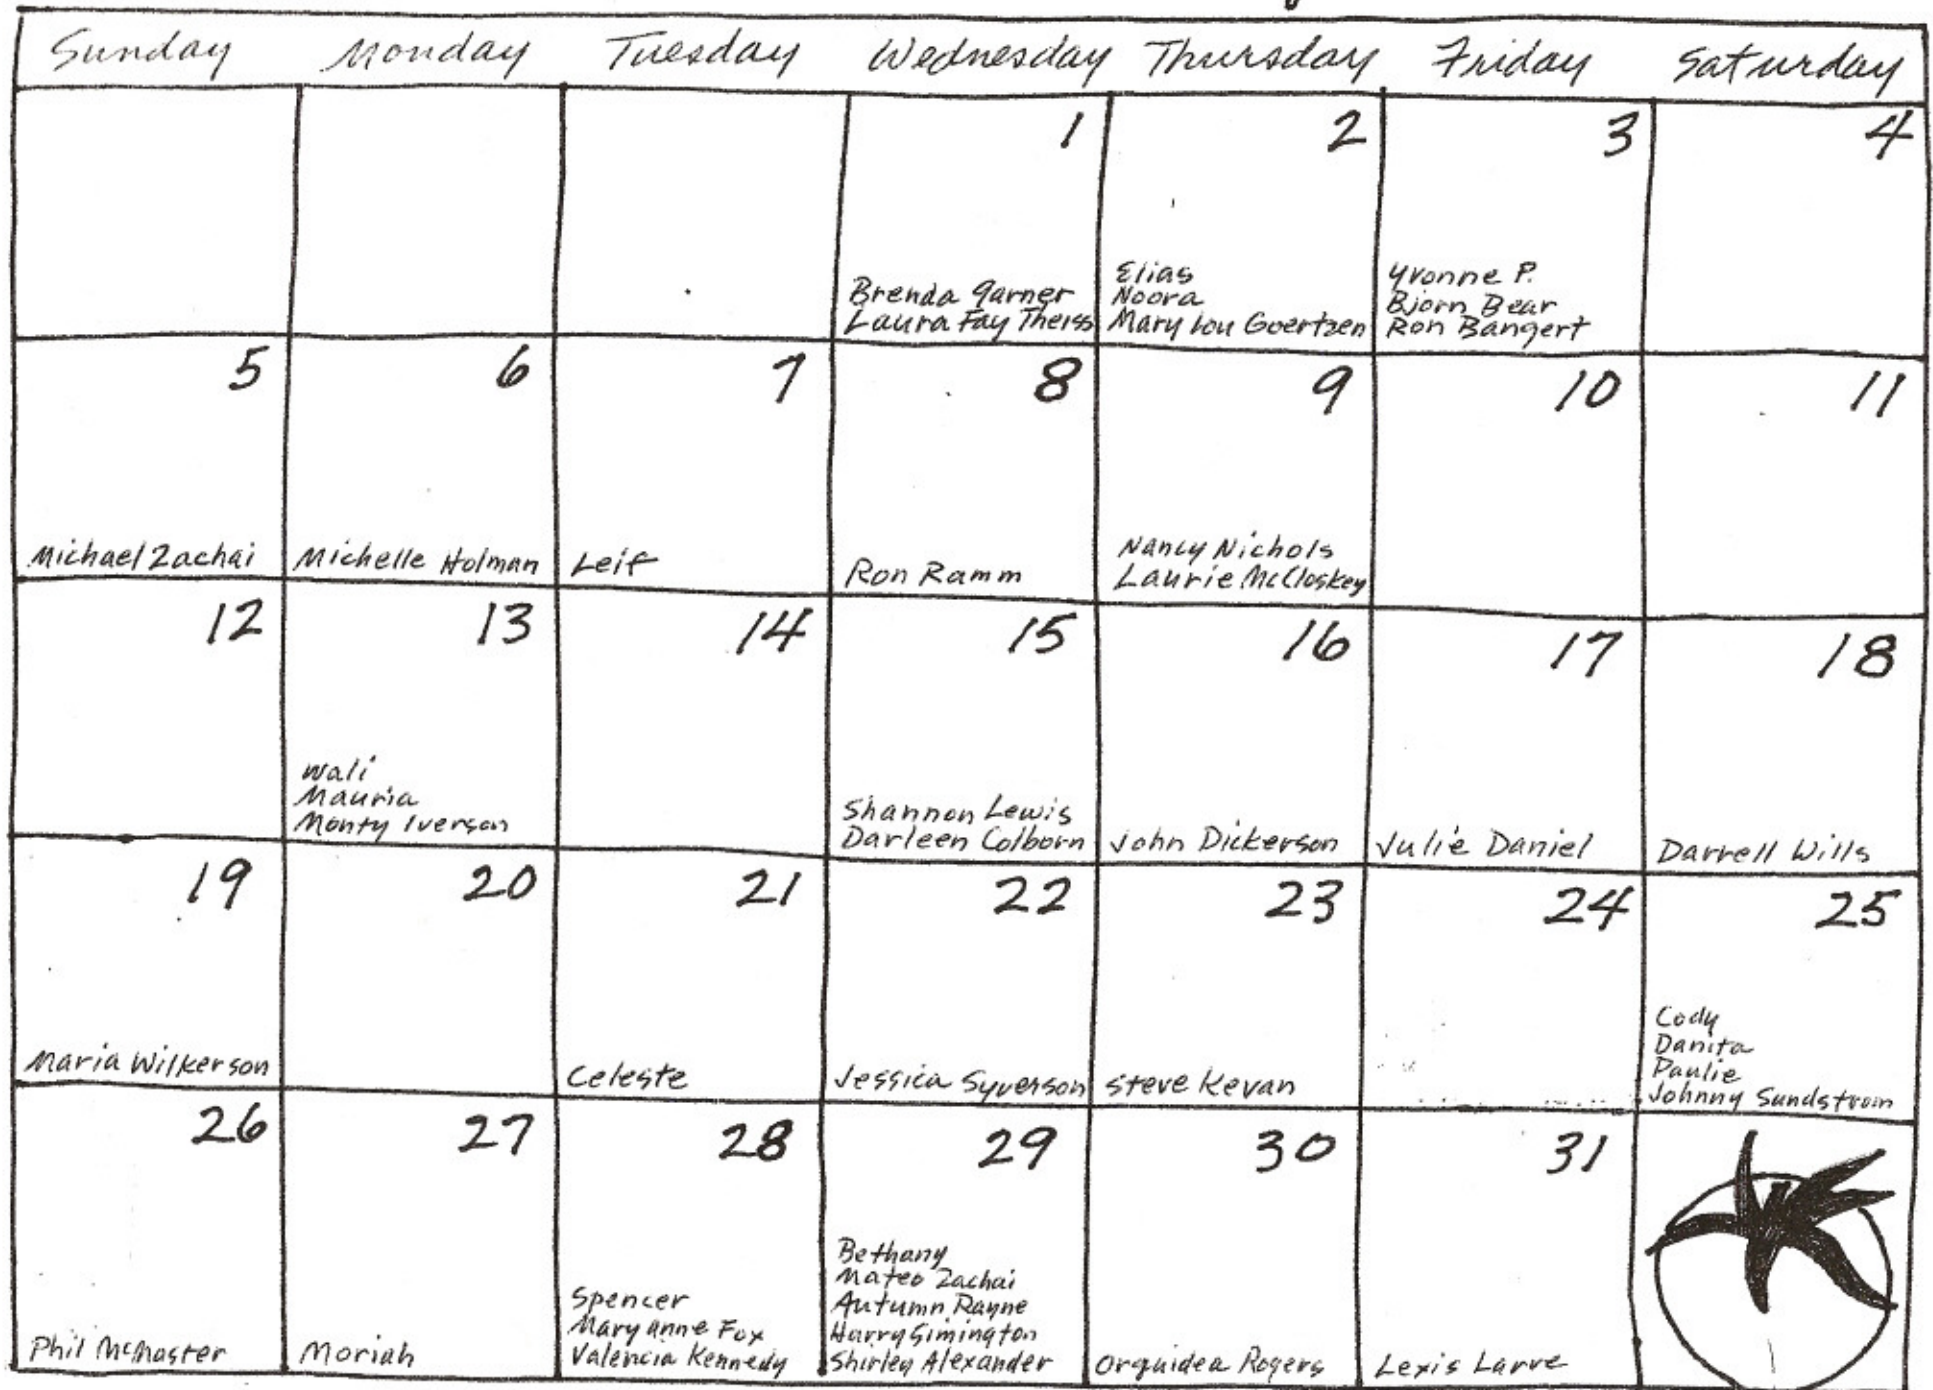 Sunday Monday Tuesday Wednesday Thursday Friday Saturday
1 2 3 4
Brenda Garner
Laura Fay Theiss
Elias
Noora
Mary Lou Goertzen
Yvonne P.
Bjorn Bear
Ron Bangert
5 6 7 8 9 10 11
Michael Zachai
Michelle Holman
Leif
Ron Ramm
Nancy Nichols
Laurie McCloskey
12 13 14 15 16 17 18
Wali
Mauria
Monty Iverson
Shannon Lewis
Darleen Colborn
John Dickerson
Julie Daniel
Darrell Wills
19 20 21 22 23 24 25
Maria Wilkerson
Celeste
Jessica Syverson
Steve Kevan
Cody
Danita
Paulie
Johnny Sundstrom
26 27 28 29 30 31
Phil McMaster
Moriah
Spencer
Mary Anne Fox
Valencia Kennedy
Bethany
Mateo Zachai
Autumn Rayne
Harry Simington
Shirley Alexander
Orquidea Rogers
Lexis Larve